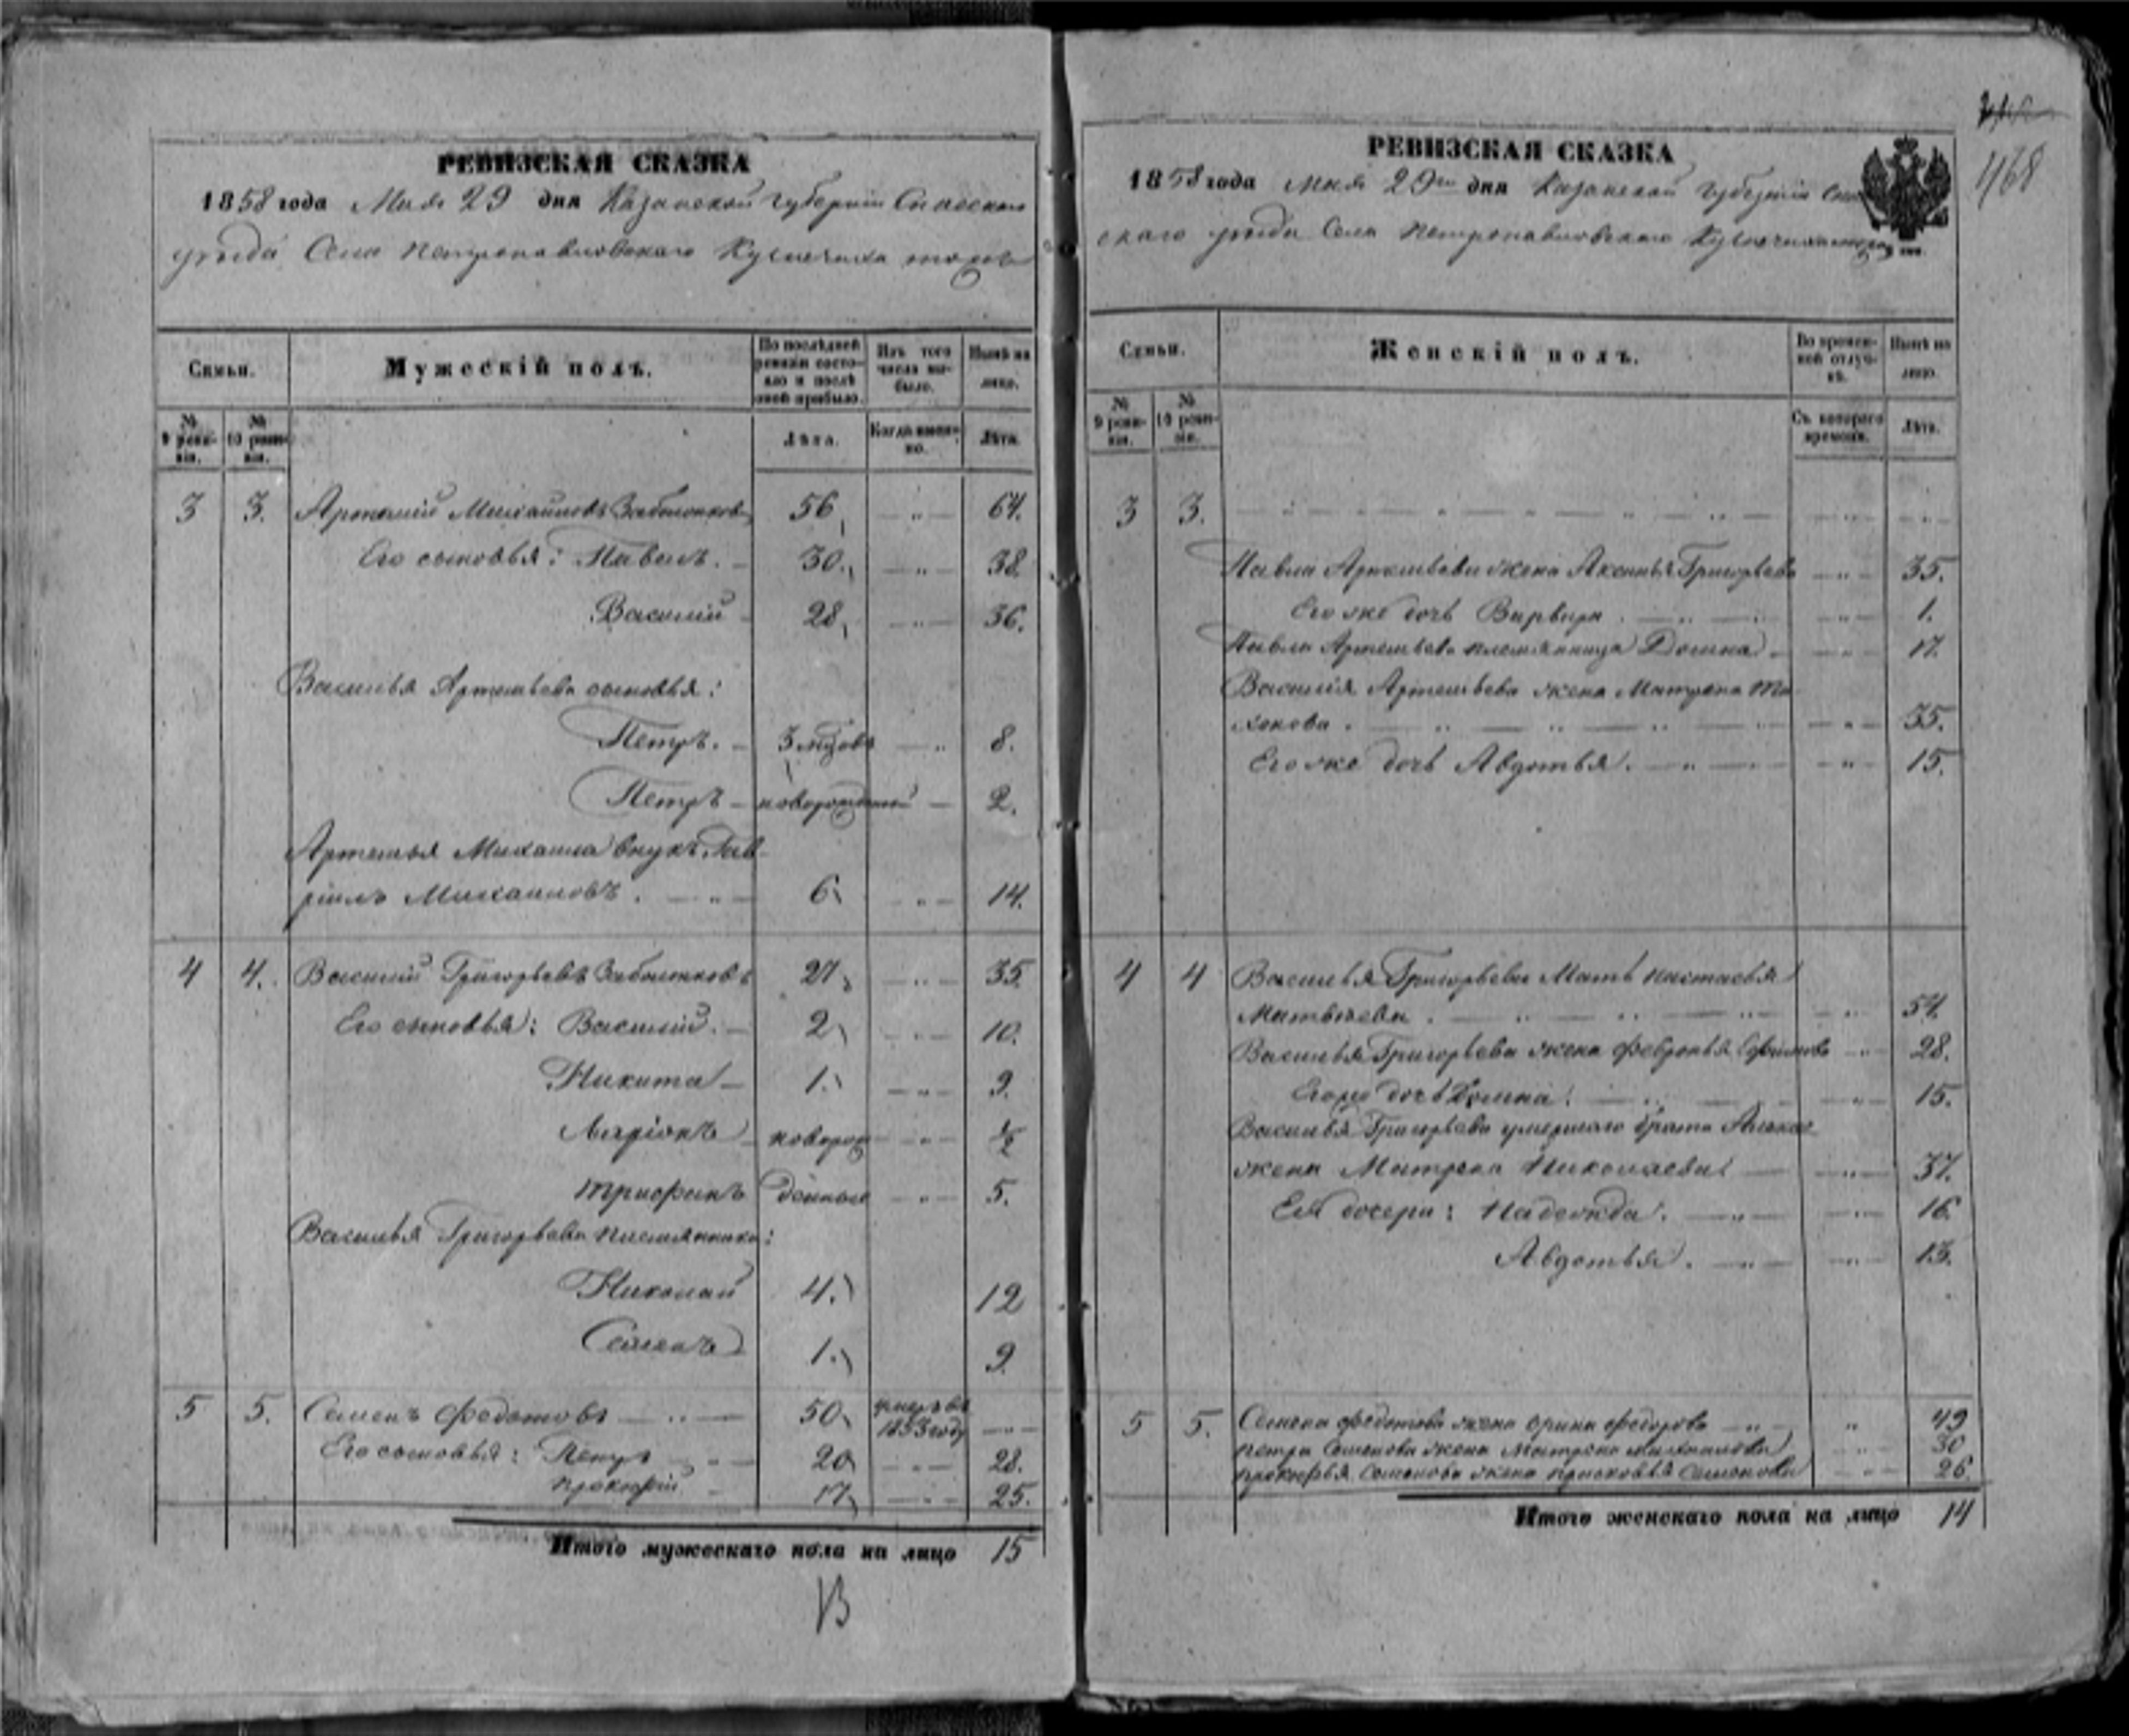 РЕВИЗСКАЯ СКАЗКА
1858 года Мая 29 дня Казанской губернии Спасскаго
уезда Села Петропавловскаго Кузнечиха тожъ
Семьи.
Мужескій полъ.
По послѣдней ревизіи состояло и послѣ оной прибыло.
Изъ того числа выбыло.
Нынѣ на лицо.
№ 9 ревизіи.
№ 10 ревизіи.
Лѣта.
Когда именно.
Лѣта.
3 3. Артемій Михайловъ Заболонковъ 56 64.
Его сыновья: Павелъ. 30. 38.
Василій 28 36.
Василья Артемьева сыновья:
Петръ. 3 мѣсяцовъ 8.
Петръ новорожденный 2.
Артемья Михаила внукъ Гав-
ріилъ Михаиловъ. 6 14.
4 4. Василій Григорьевъ 27 35.
Его сыновья: Василій. 2 10.
Никита 1. 9.
Ларіонъ новорож ½
Трифонъ денные 5.
Василья Григорьева племянники:
Николай 4. 12
Семенъ 1. 9.
5 5. Семенъ Федотовъ 50 умеръ въ 1853 году
Его сыновья: Петръ 20 28.
Прокофій 17 25.
Итого мужескаго пола на лицо 15
13
РЕВИЗСКАЯ СКАЗКА
1858 года Мая 29го дня Казанской губерніи Спас
скаго уезда Села Петропавловскаго Кузнечиха тожъ
468
Семьи.
Женскій полъ.
Во временной отлучкѣ.
Нынѣ на лицо.
№ 9 ревизіи.
№ 10 ревизіи.
Съ котораго времени.
Лѣта.
3 3.
Павла Артемьева жена Аксинья Григорьева 35.
Его же дочь Варвара 1.
Павла Артемьева племянница Домна 17.
Василія Артемьева жена Матрена Ти
хонова. 35.
Его же дочь Авдотья. 15.
4 4 Василья Григорьева Мать Настасья
Матвѣева. 54.
Василья Григорьева жена Февронья Ефимова 28.
Его же дочь Домна. 15.
Василья Григорьева умершаго брата
жена Матрена Николаева 37.
Ея дочери: Надежда. 16.
Авдотья. 13.
5 5. Семена Федотова жена Ирина Федорова 49
Петра Семенова жена Матрена Михаилова 30
Прокофья Семенова жена Прасковья Семенова 26.
Итого женскаго пола на лицо 14